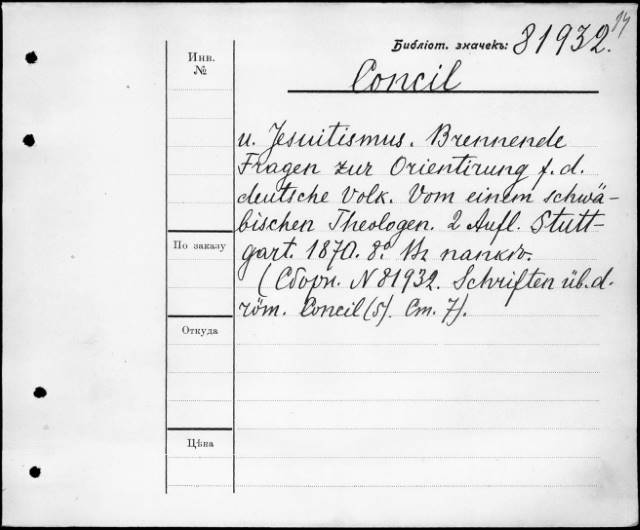 Библіот. значекъ: 81932.
Инв.
№
Concil
u. Jesuitismus. Brennende
Fragen zur Orientirung f. d.
deutsche Volk. Vom einem schwä-
bischen Theologen. 2 Aufl. Stutt-
По заказу
gart. 1870. 8º. Въ папкѣ.
(Сборн. N 81932. Schriften üb. d.
röm. Concil (5). Ст. 7).
Откуда
Цѣна